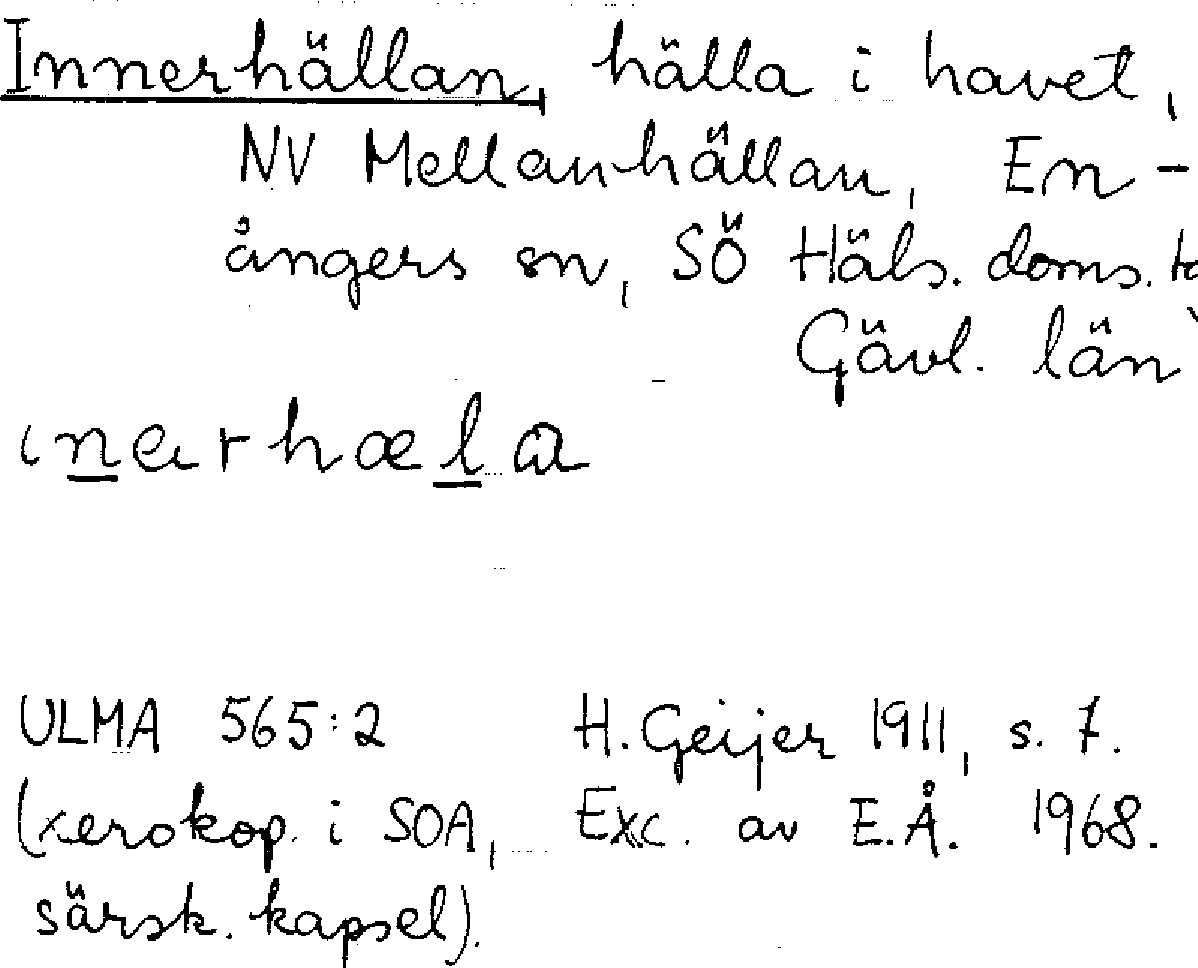 Innerhällan, hälla i havet,
NV Mellanhällan, En-
ångers sn, SÖ Häls. doms.
Gävl. län
ɩnɐrhælɑ
ULMA 565:2 H. Geijer 1911, s. 7.
(xerokop. i SOA, Exc. av E.Å. 1968.
särsk. kapsel).